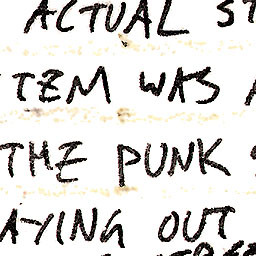 ACTUAL ST
TEM WAS
THE PUNK
AYING OUT